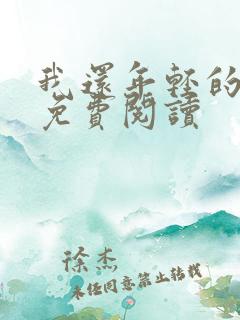 我還年輕的
免費閱讀
徐杰
未經同意禁止轉載